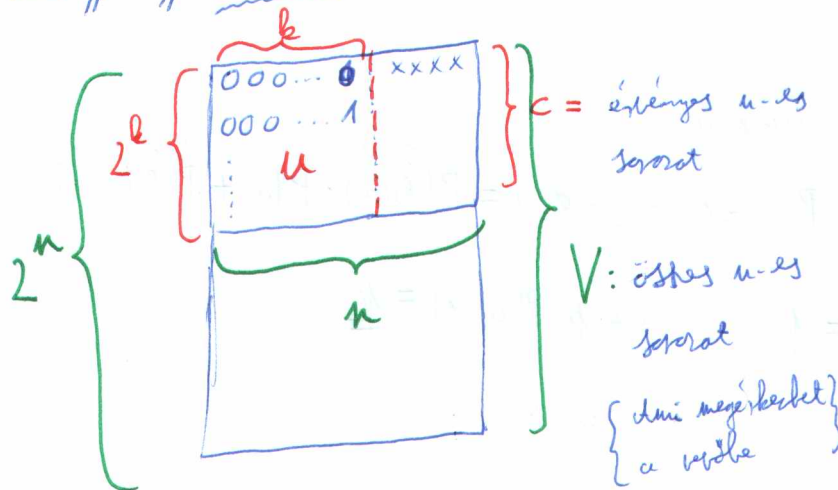 k
0 0 0 ... 0 x x x x
0 0 0 .... 1
2^k
u
c = érvényes n-es
sorozat
2^n
n
V: összes n-es
sorozat
{ Ami megérkezhet }
a vevőbe